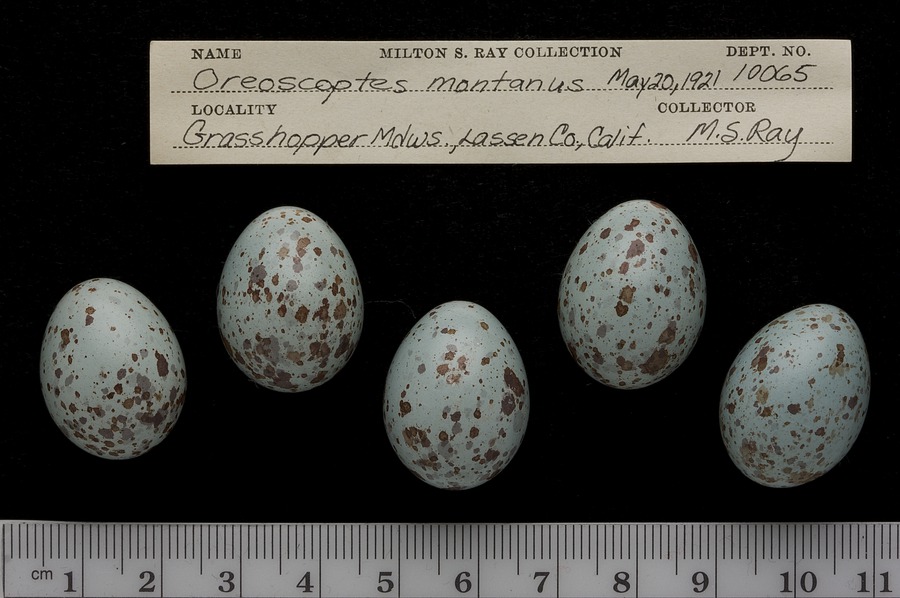 NAME MILTON S. RAY COLLECTION DEPT. NO.
Oreoscoptes montanus May 20, 1921 10065
LOCALITY COLLECTOR
Grasshopper Mdws., Lassen Co., Calif. M.S. Ray
cm 1 2 3 4 5 6 7 8 9 10 11